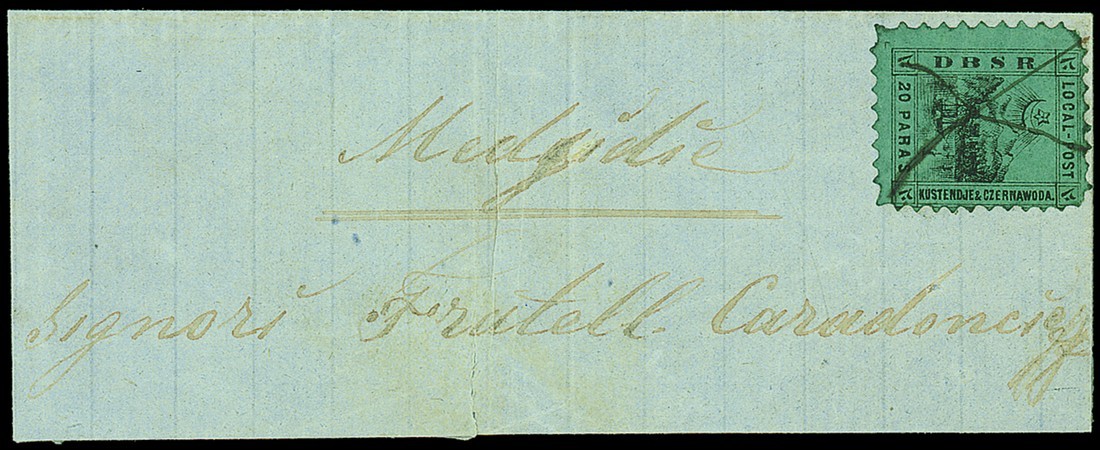 DBSR
LOCAL-POST
20 PARAS
KUSTENDJE & CZERNAWODA.
Medgidie
Signori Fratell.